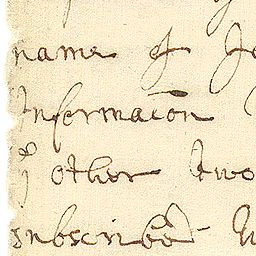 name of Jo
Informacōn
other two
subscribed